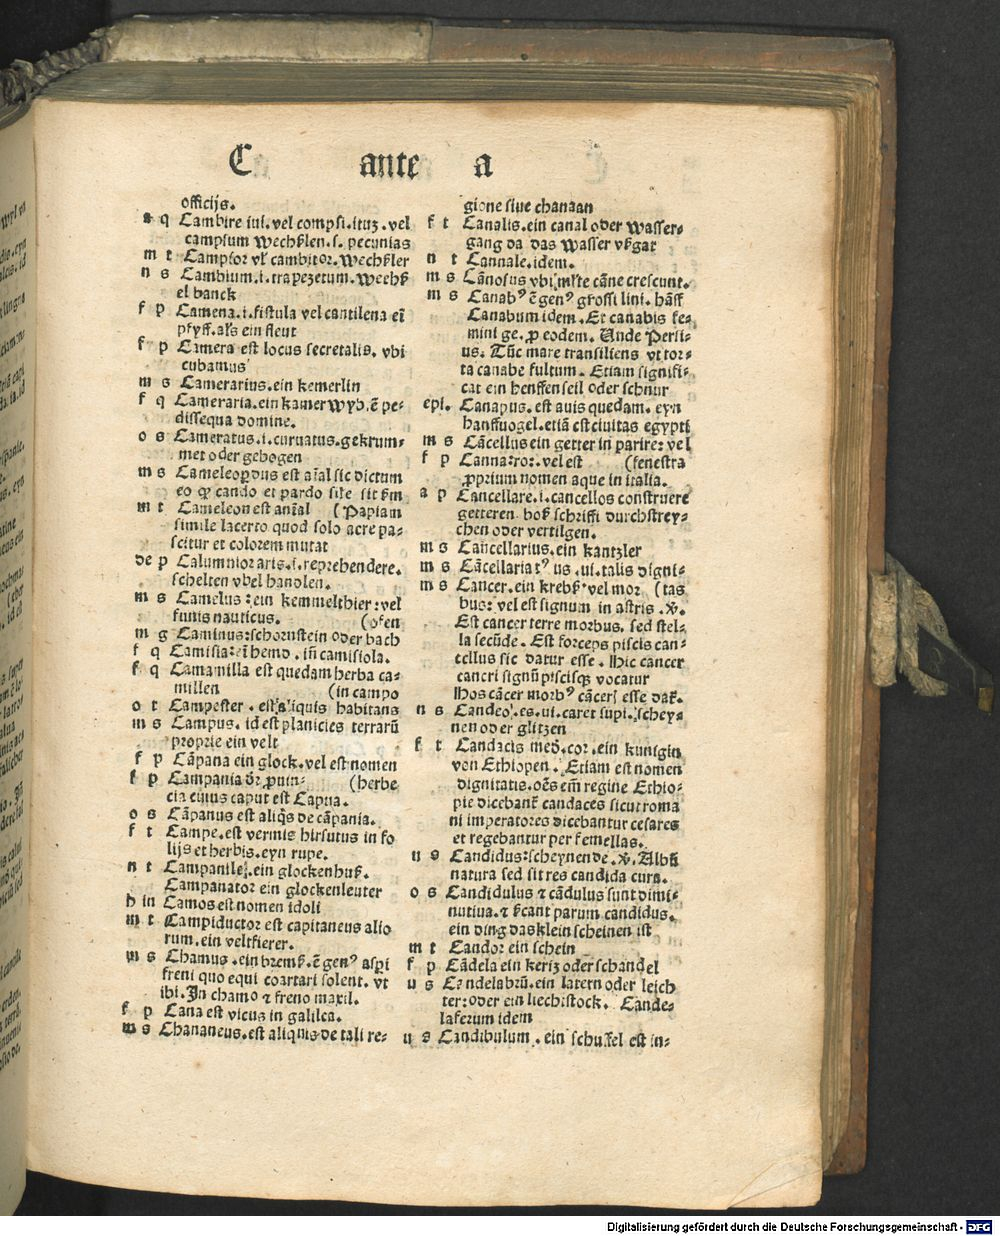 C ante a
officijs.
a q Cambire iui. vel compsi. ituʒ. vel
campsum Wechßlen. s. pecunias
m t Campsor vl' cambitor. Wechßler
n s Cambium. i. trapezetum. Weehß
el banck
f p Camena. i. fistula vel cantilena eī
pfyff. als ein fleut
f p Camera est locus secretalis. vbi
cubamus
m s Camerarius. ein kemerlin
f q Cameraria. ein kamer wyb. ē pe-
dissequa domine.
o s Cameratus. i. curuatus. gekrum-
met oder gebogen
m s Cameleopardus est aīal sic dictum
eo ꝙ cando et pardo sil'e sit ẜm
m t Cameleon est aīal (Papiam
simile lacerto quod solo aere pa-
scitur et colorem mutat
de p Calumnior aris. i. reprehendere.
schelten vbel handlen.
m s Camelus: ein kemmelthier: vel
funis nauticus. (ofen
m g Caminus: schornstein oder bach
f q Camisia: eī hemd. iñ camisiola.
f q Camamilla est quedam herba ca-
millen (in campo
o t Campester. est aliquis habitans
m s Campus. id est planicies terrarū
proprie ein velt
f p Cāpana ein glock. vel est nomen
f p Campania dr̄ ꝓuin- (herbe
cia cuius caput est Capua.
o s Cāpanus est aliq̄s de cāpania.
f t Campe. est vermis hirsutus in fo
lijs et herbis. eyn rupe.
n t Campanile. ein glockenhuß.
Campanator ein glockenleuter
h in Camos est nomen idoli
m t Campiductor est capitaneus alio
rum. ein veltfierer.
m s Chamus. ein bremß. ē genꝰ aspi
freni quo equi coartari solent. vt
ibi. In chamo ⁊ freno maxil.
f p Cana est vicus in galilea.
m s Chananeus. est aliquis de tali re-
gione siue chanaan
f t Canalis. ein canal oder wasser-
gang da das wasser vßgat
n t Cannale. idem.
m s Cānosus vbi mlte cāne crescunt.
m s Canabꝰ ē genꝰ grossi lini. hāff
Canabum idem. Et canabis fe-
mini ge. ꝓ eodem. Unde Persi-
us. Tūc mare transiliens vt tor-
ta canabe fultum. Etiam signifi-
cat ein henffen seil oder schnur
epi. Canapus. est auis quedam. eyn
hanffuogel. etiā est ciuitas egypti
m s Cācellus ein getter in pariete: vel
f p Canna: ro: vel est (fenestra
ꝓprium nomen aque in italia.
a p Cancellare. i. cancellos construere
getteren. hoß schrifft durchstrey-
chen oder vertilgen.
m s Cancellarius. ein kantzler
m s Cācellariatꝰ us. ui. talis digni-
m s Cancer. ein krebß vel mor (tas
bus: vel est signum in astris. v̄.
Est cancer terre morbus. sed stel-
la secūde. Est forceps piscis can-
cellus sic datur esse. Hic cancer
cancri signū piscisqꝫ vocatur
Hos cācer morbꝰ cāceris esse dat'.
n s Candeo. es. ui. caret supi. schey-
nen oder glitzen
f t Candacis med. cor. ein kunigin
von Ethiopen. Etiam est nomen
dignitatis. oēs em̄ regine Ethio-
pie dicebant' candaces sicut roma
ni imperatores dicebantur cesares
et regebantur per femellas.
u s Candidus: scheynende. v̄. Albū
natura sed sit res candida cura.
o s Candidulus ⁊ cādulus sunt dimi-
nutiua. ⁊ ẜcant parum candidus.
ein ding das klein scheinen ist
m t Candor ein schein
f p Cādela ein kertz oder schandel
u s Candelabrū. ein latern oder leich
ter: oder ein liechtstock. Cande-
laferum idem
u s Candibulum. ein schufel est in-
Digitalisierung gefördert durch die Deutsche Forschungsgemeinschaft - DFG